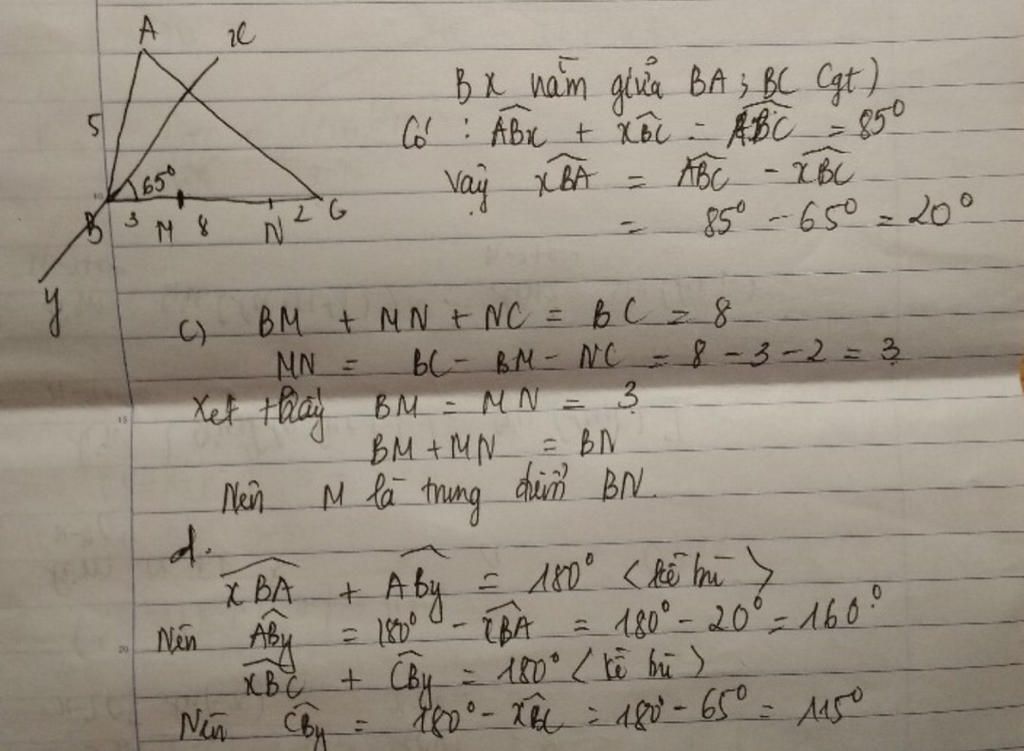 A x
5
65°
B 3 M 8 N 2 C
y
Bx nằm giữa BA ; BC (gt)
Có : ABx + xBC = ABC = 85°
Vậy xBA = ABC - xBC
= 85° - 65° = 20°
c) BM + MN + NC = BC = 8
MN = BC - BM - NC = 8 - 3 - 2 = 3
Xét thấy BM = MN = 3
BM + MN = BN
Nên M là trung điểm BN.
d.
xBA + ABy = 180° < kề bù >
Nên ABy = 180° - xBA = 180° - 20° = 160°
xBC + CBy = 180° < kề bù >
Nên CBy = 180° - xBC = 180° - 65° = 115°